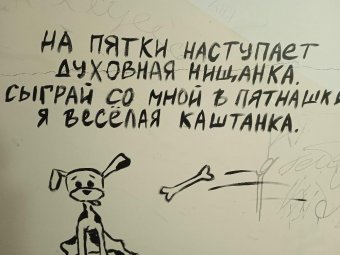 НА ПЯТКИ НАСТУПАЕТ
ДУХОВНАЯ НИЩАНКА.
СЫГРАЙ СО МНОЙ В ПЯТНАШКИ
Я ВЕСЁЛАЯ КАШТАНКА.